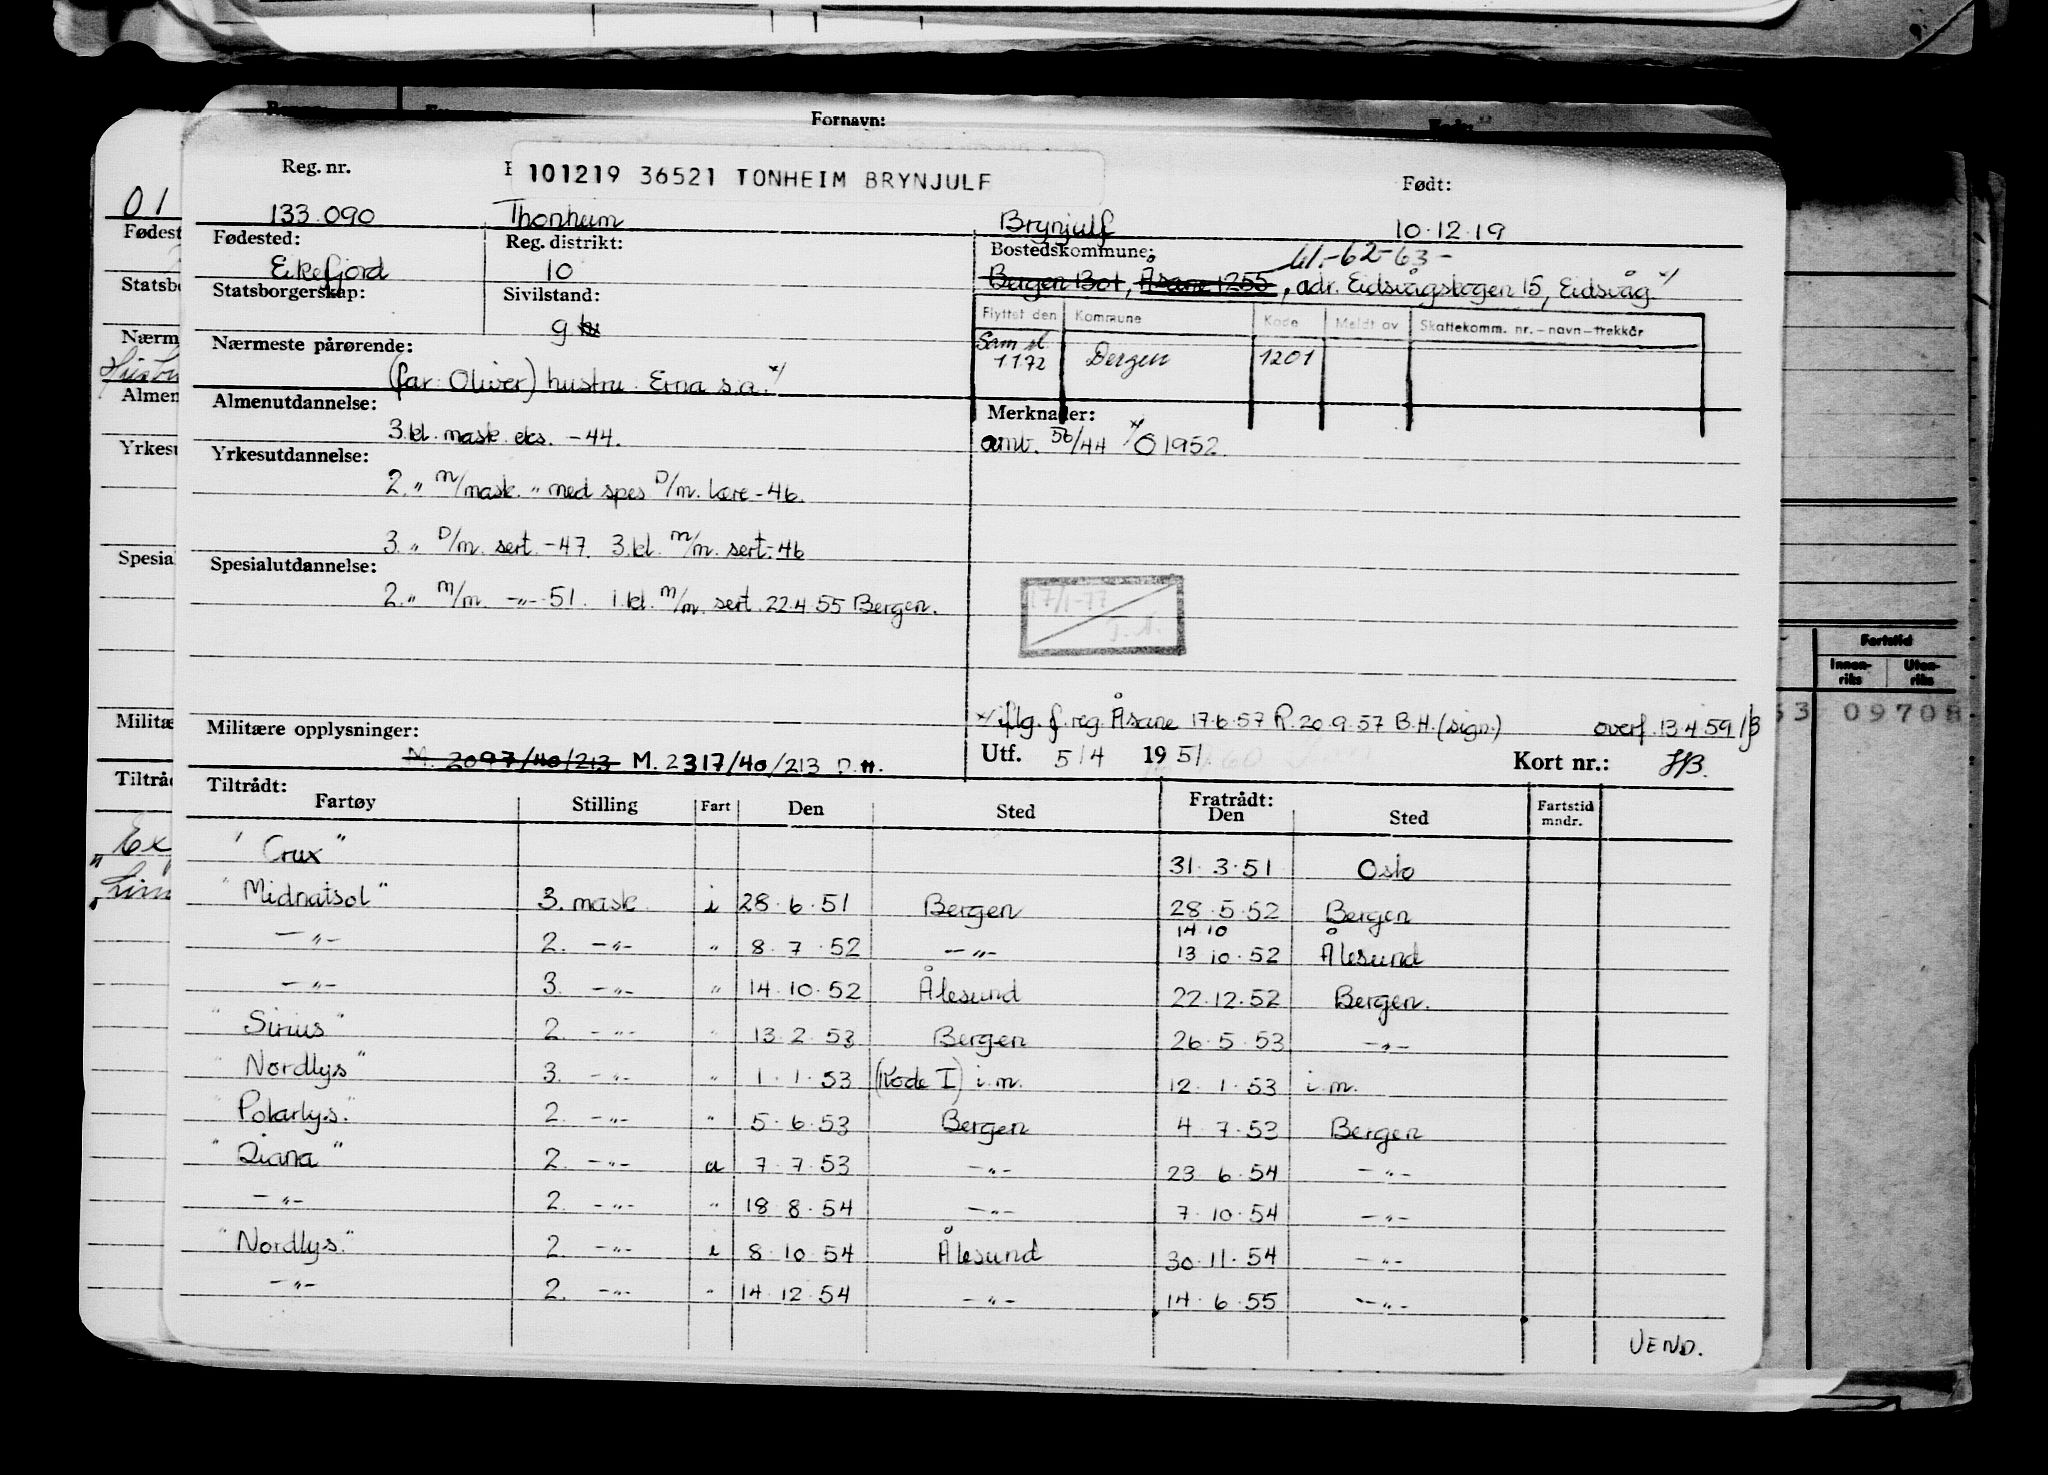 Fornavn:
Reg. nr.
101219 36521 TONHEIM BRYNJULF
Født:
133.090 Thonheim Brynjulf 10.12.19
Fødested: Reg. distrikt: Bostedskommune:
61-62-63-
Eikefjord 10 Bergen 1301, Åsane 1255, adr. Eidsvågskogen 15, Eidsvåg x/
Statsborgerskap: Sivilstand:
g
Flyttet den Kommune Kode Meldt av Skattekomm. nr.-navn-trekkår
1172 Bergen 1201
Nærmeste pårørende:
(far: Oliver) hustru: Erna s.a. x/
Almenutdannelse: Merknader:
3.kl. mask. eks. -44. amt. 56/44 x/ O 1952.
Yrkesutdannelse:
2. " m/mask. " med spes D/m. lære -46.
3. " D/m. sert. -47. 3.kl. m/m. sert.-46
Spesialutdannelse:
2. " m/m. -"- 51. 1.kl. m/m. sert. 22.4.55 Bergen.
17/1-77
T.A.
x/ iflg. f.reg. Åsane 17.6.57 R. 20.9.57 B.H. (sign.) overf. 13.4.59/
Militære opplysninger:
M. 2097/40/213 M. 2317/40/213 D.H.
Utf. 5/4 1951 Kort nr.: HB.
Tiltrådt: Fratrådt:
Fartøy Stilling Fart Den Sted Den Sted Fartstid mndr.
"Crux" 31.3.51 Oslo
"Midnatsol" 3. mask. i 28.6.51 Bergen 28.5.52 Bergen
14.10
-"- 2. -"- " 8.7.52 -"- 13.10.52 Ålesund
-"- 3. -"- " 14.10.52 Ålesund 22.12.52 Bergen.
"Sirius" 2. -"- " 13.2.53 Bergen 26.5.53 -"-
"Nordlys" 3. -"- " 1.1.53 (Kode I) i.m. 12.1.53 i.m.
"Polarlys." 2. -"- " 5.6.53 Bergen 4.7.53 Bergen
"Diana" 2. -"- u 7.7.53 -"- 23.6.54 -"-
-"- 2. -"- " 18.8.54 -"- 7.10.54 -"-
"Nordlys." 2. -"- i 8.10.54 Ålesund 30.11.54 -"-
-"- 2. -"- " 14.12.54 -"- 14.6.55 -"-
VEND.
01
Fødest
Statsbo
Nærm
Almen
Yrkesu
Spesia
Militæ
Tiltråd
Ex
Fartstid
Innen-riks Uten-riks
53 09708